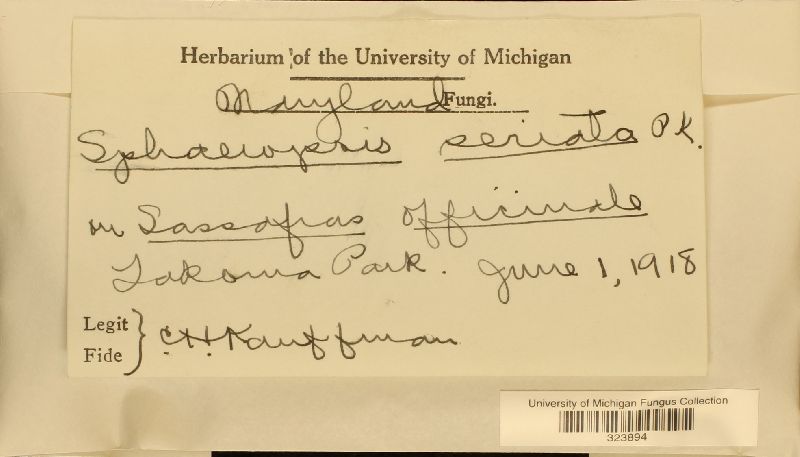 Herbarium of the University of Michigan
Maryland Fungi.
Sphaeropsis seriata Pk.
on Sassafras officinale
Takoma Park. June 1, 1918
Legit
Fide
C.H. Kauffman
University of Michigan Fungus Collection
323894